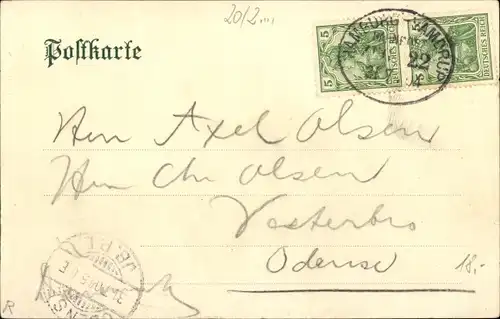 20/2...
Postkarte
5 DEUTSCHES REICH
5 DEUTSCHES REICH
HAMBURG VAMDRUP
22
Herrn Axel Olsen
Hrn Chr Olsen
Vesterbro
Odense
18,-
R